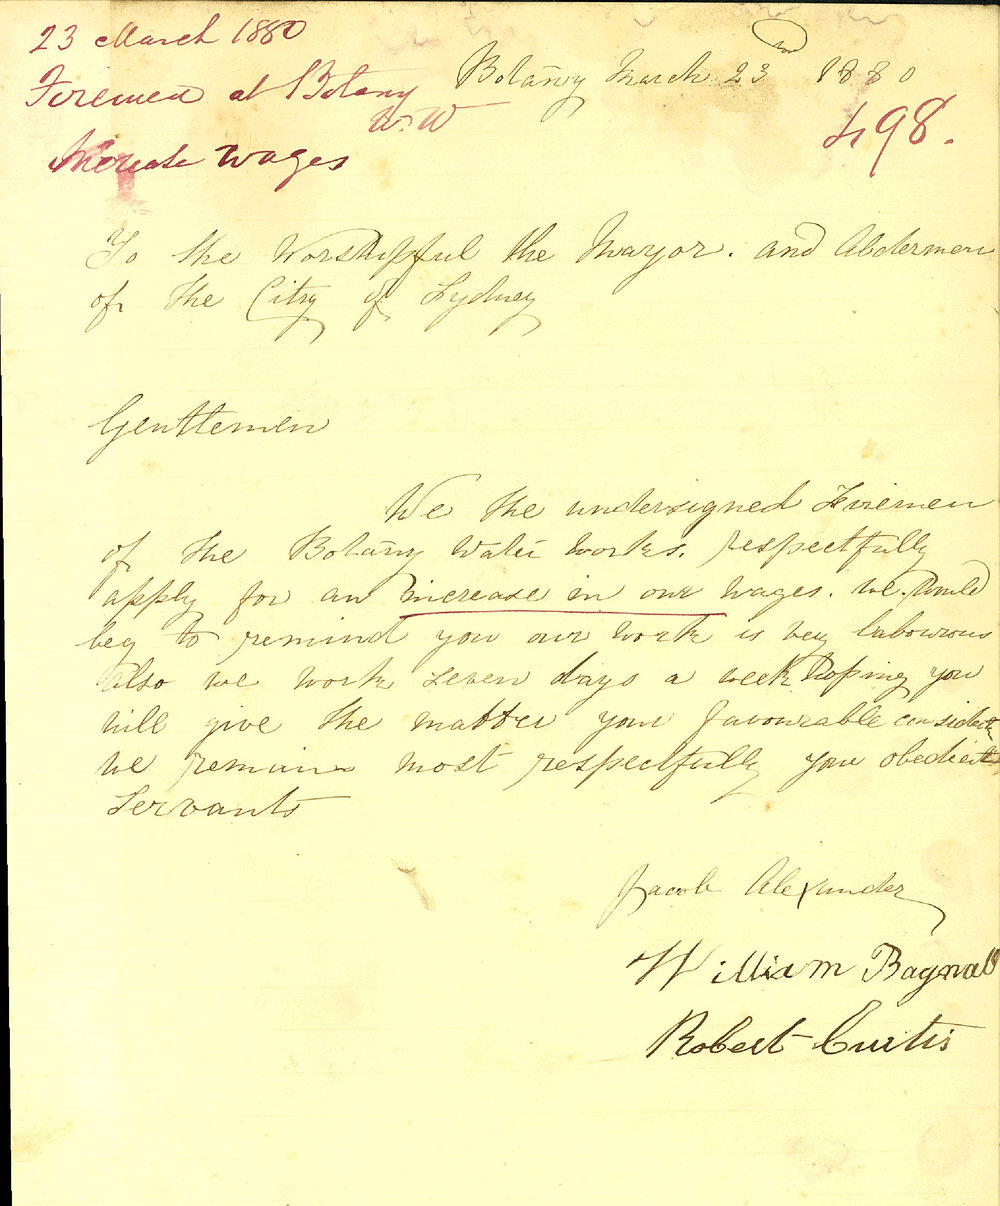 23 March 1880
Firemen at Botany
W. W
Increase Wages
Botany March 23rd 1880
498.
To the Worshipful the Mayor. and Aldermen
of the City of Sydney
Gentlemen
We the undersigned Firemen
of the Botany Water Works. respectfully
apply for an increase in our wages. we. Would
beg to remind you our work is very labourous
also we work seven days a week hoping you
will give the matter your favourable
we remain most respectfully your obedient
Servants
Jacob Alexander
William Bagnall
Robert Curtis